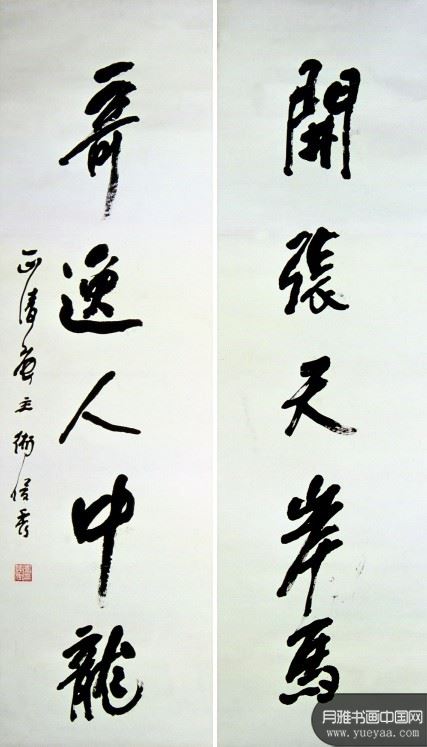 開張天岸馬
奇逸人中龍
正清 衛俊秀
月雅书画中国网
www.yueyaa.com